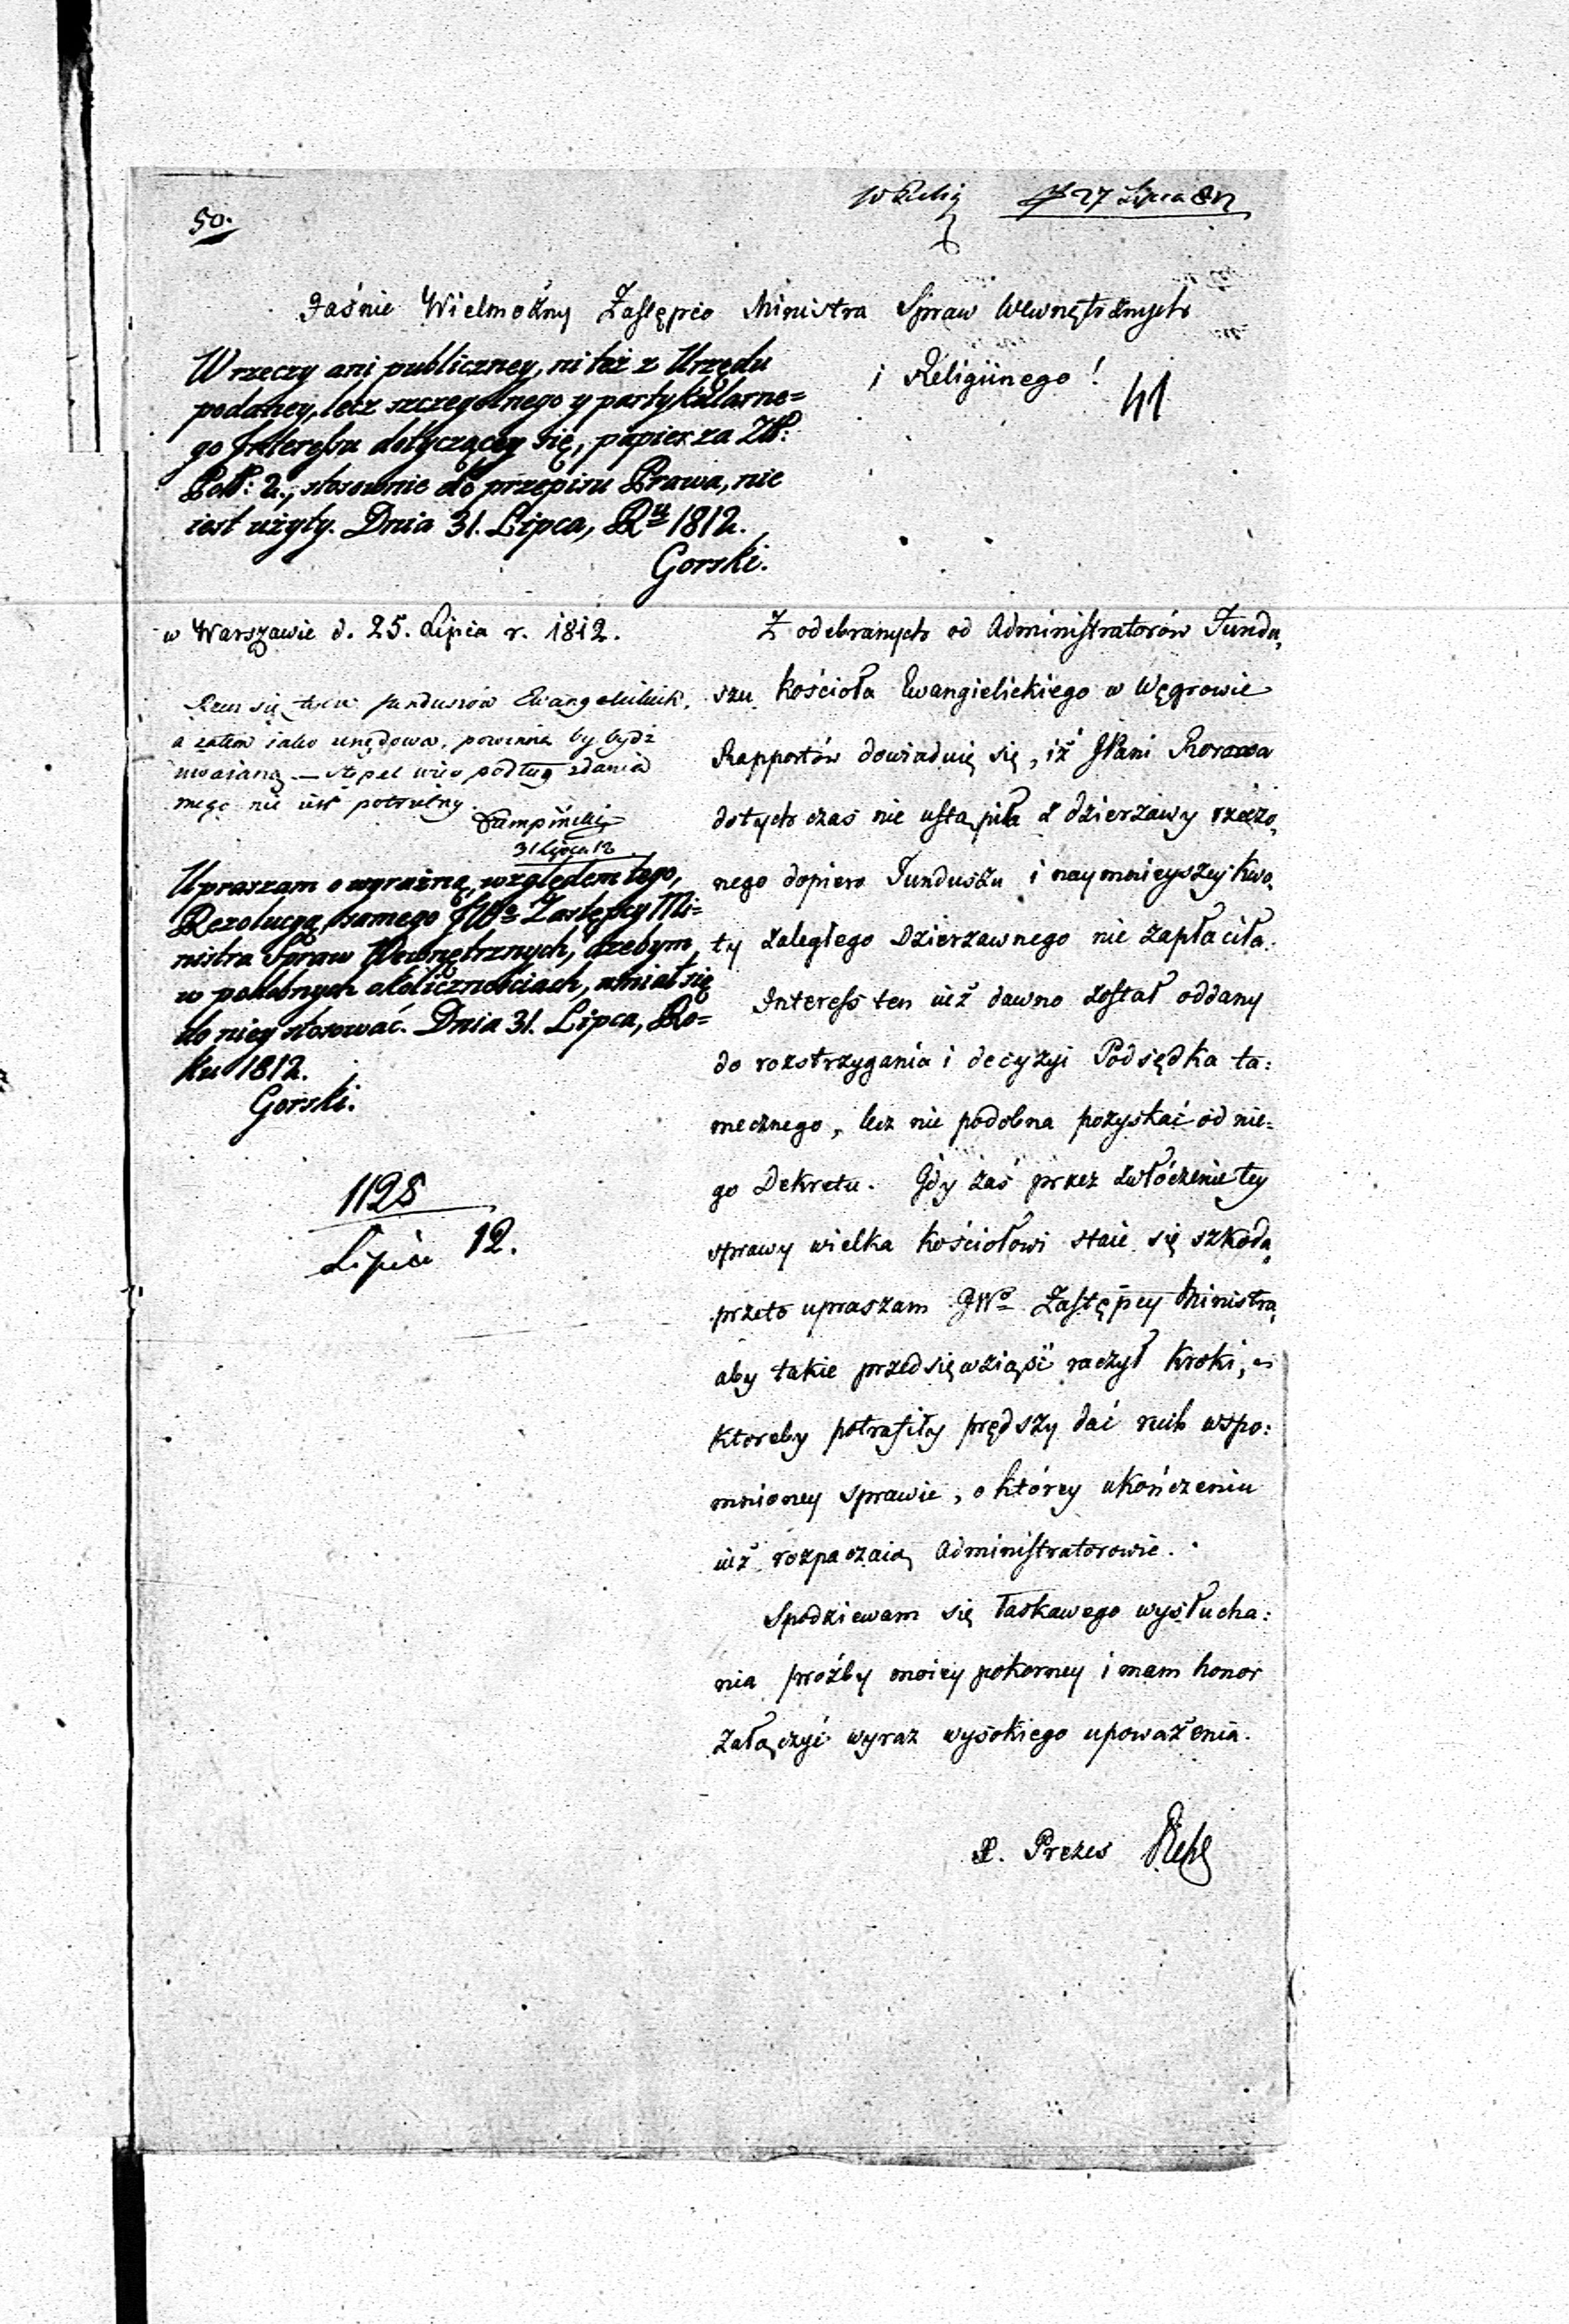 50.
W Relig
27 Lipca 812
Jaśnie Wielmożny Zastępco Ministra Spraw Wewnętrznych
i Religiinego!
41
W rzeczy ani publiczney, ni też z Urzędu
podaney, lecz szczegolnego y partykularne=
go Interesu dotyczącey się, papier za Zł:
Pol: 2., stosownie do przepisu Prawa, nie
iest użyty. Dnia 31. Lipca, Ru 1812.
Gorski.
w Warszawie d. 25. Lipca r. 1812.
Rzecz się tycze funduszów Ewangelickich,
a zatem iako urzędowa, powinna by bydź
uważaną — stępel więc podług zdania
mego nie iest potrzebny.
31 Lipca 12
Upraszam o wyraźną, względem tego,
Rezolucyą, samego JWo Zastępcy Mi=
nistra Spraw Wewnętrznych, ażebym
w podobnych okolicznościach, umiał się
do niey stosować. Dnia 31. Lipca, Ro=
ku 1812.
Gorski.
1128
Lipca 12.
Z odebranych od Administratorów Fundu,
szu Kościoła Ewangielickiego w Węgrowie
Rapportów dowiaduię się, iż JPani
dotychczas nie ustąpiła z dzierzawy rzeczo,
nego dopiero Funduszu i naymnieyszey Kwo,
ty zaległego Dzierzawnego nie zapłaciła.
Interess ten iuż dawno został oddany
do rozstrzygania i decyzyi Podsędka ta:
mecznego, lecz nie podobna pozyskać od nie:
go Dekretu. Gdy zaś przez zwłóczenie tey
sprawy wielka Kościołowi staie się szkoda,
przeto upraszam JWo Zastępcy Ministra,
aby takie przedsięwziąść raczył Kroki,
ktoreby potrafiły prędszy dać ruch wspo:
mnioney sprawie, o którey ukończeniu
iuż rozpaczaią Administratorowie.
Spodziewam się łaskawego wysłucha:
nia prośby moiey pokorney i mam honor
załączyć wyraz wysokiego upoważenia.
X. Prezes Diehl